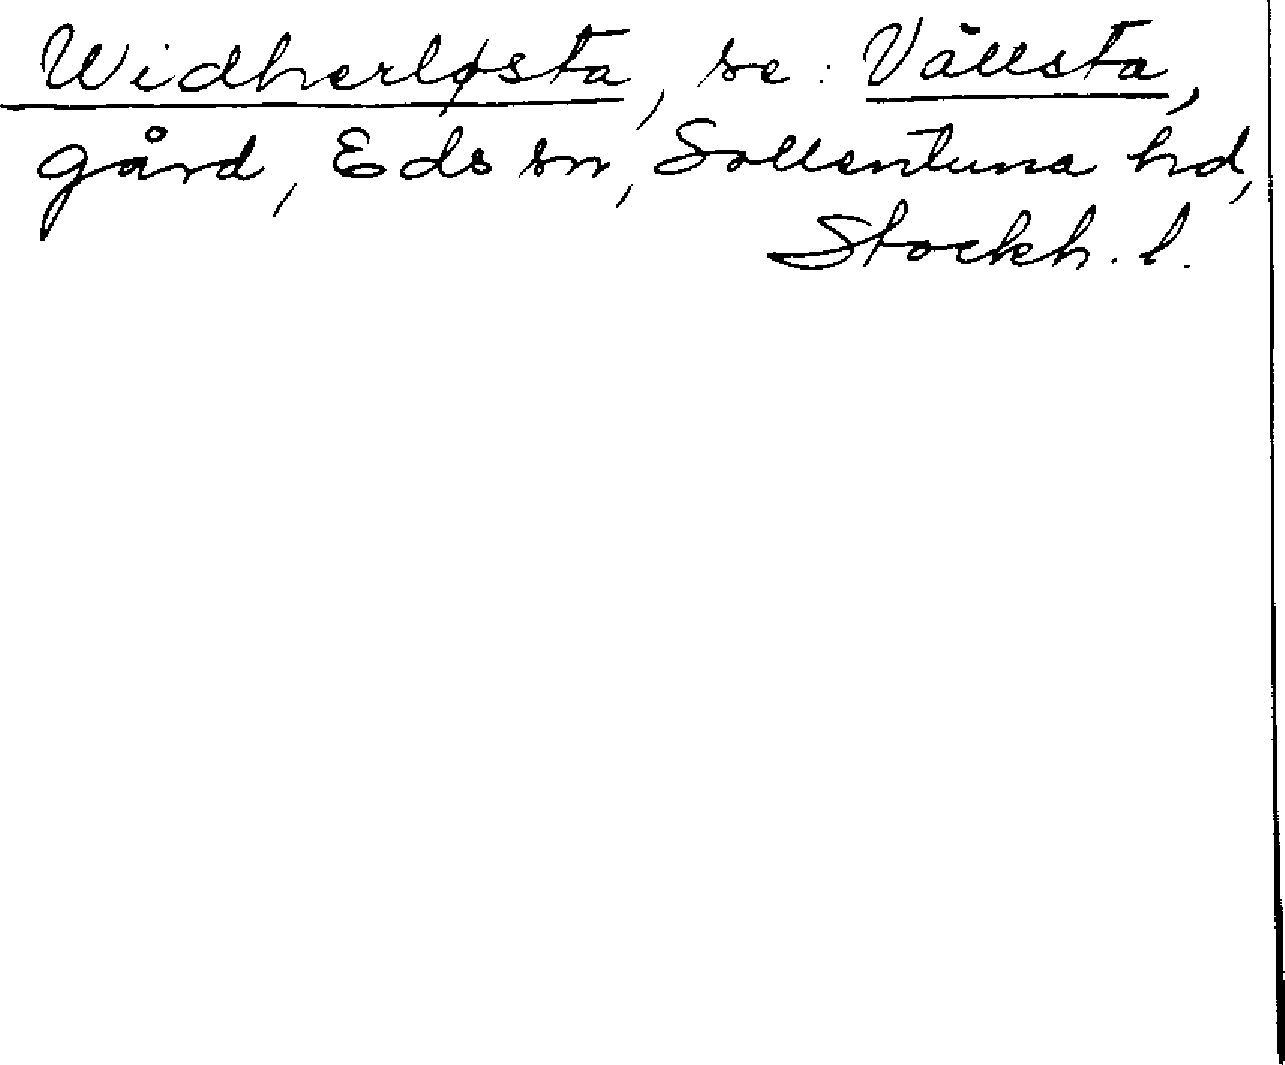 Widherløsta, se: Vällsta,
gård, Eds sn, Sollentuna hd,
Stockh. l.